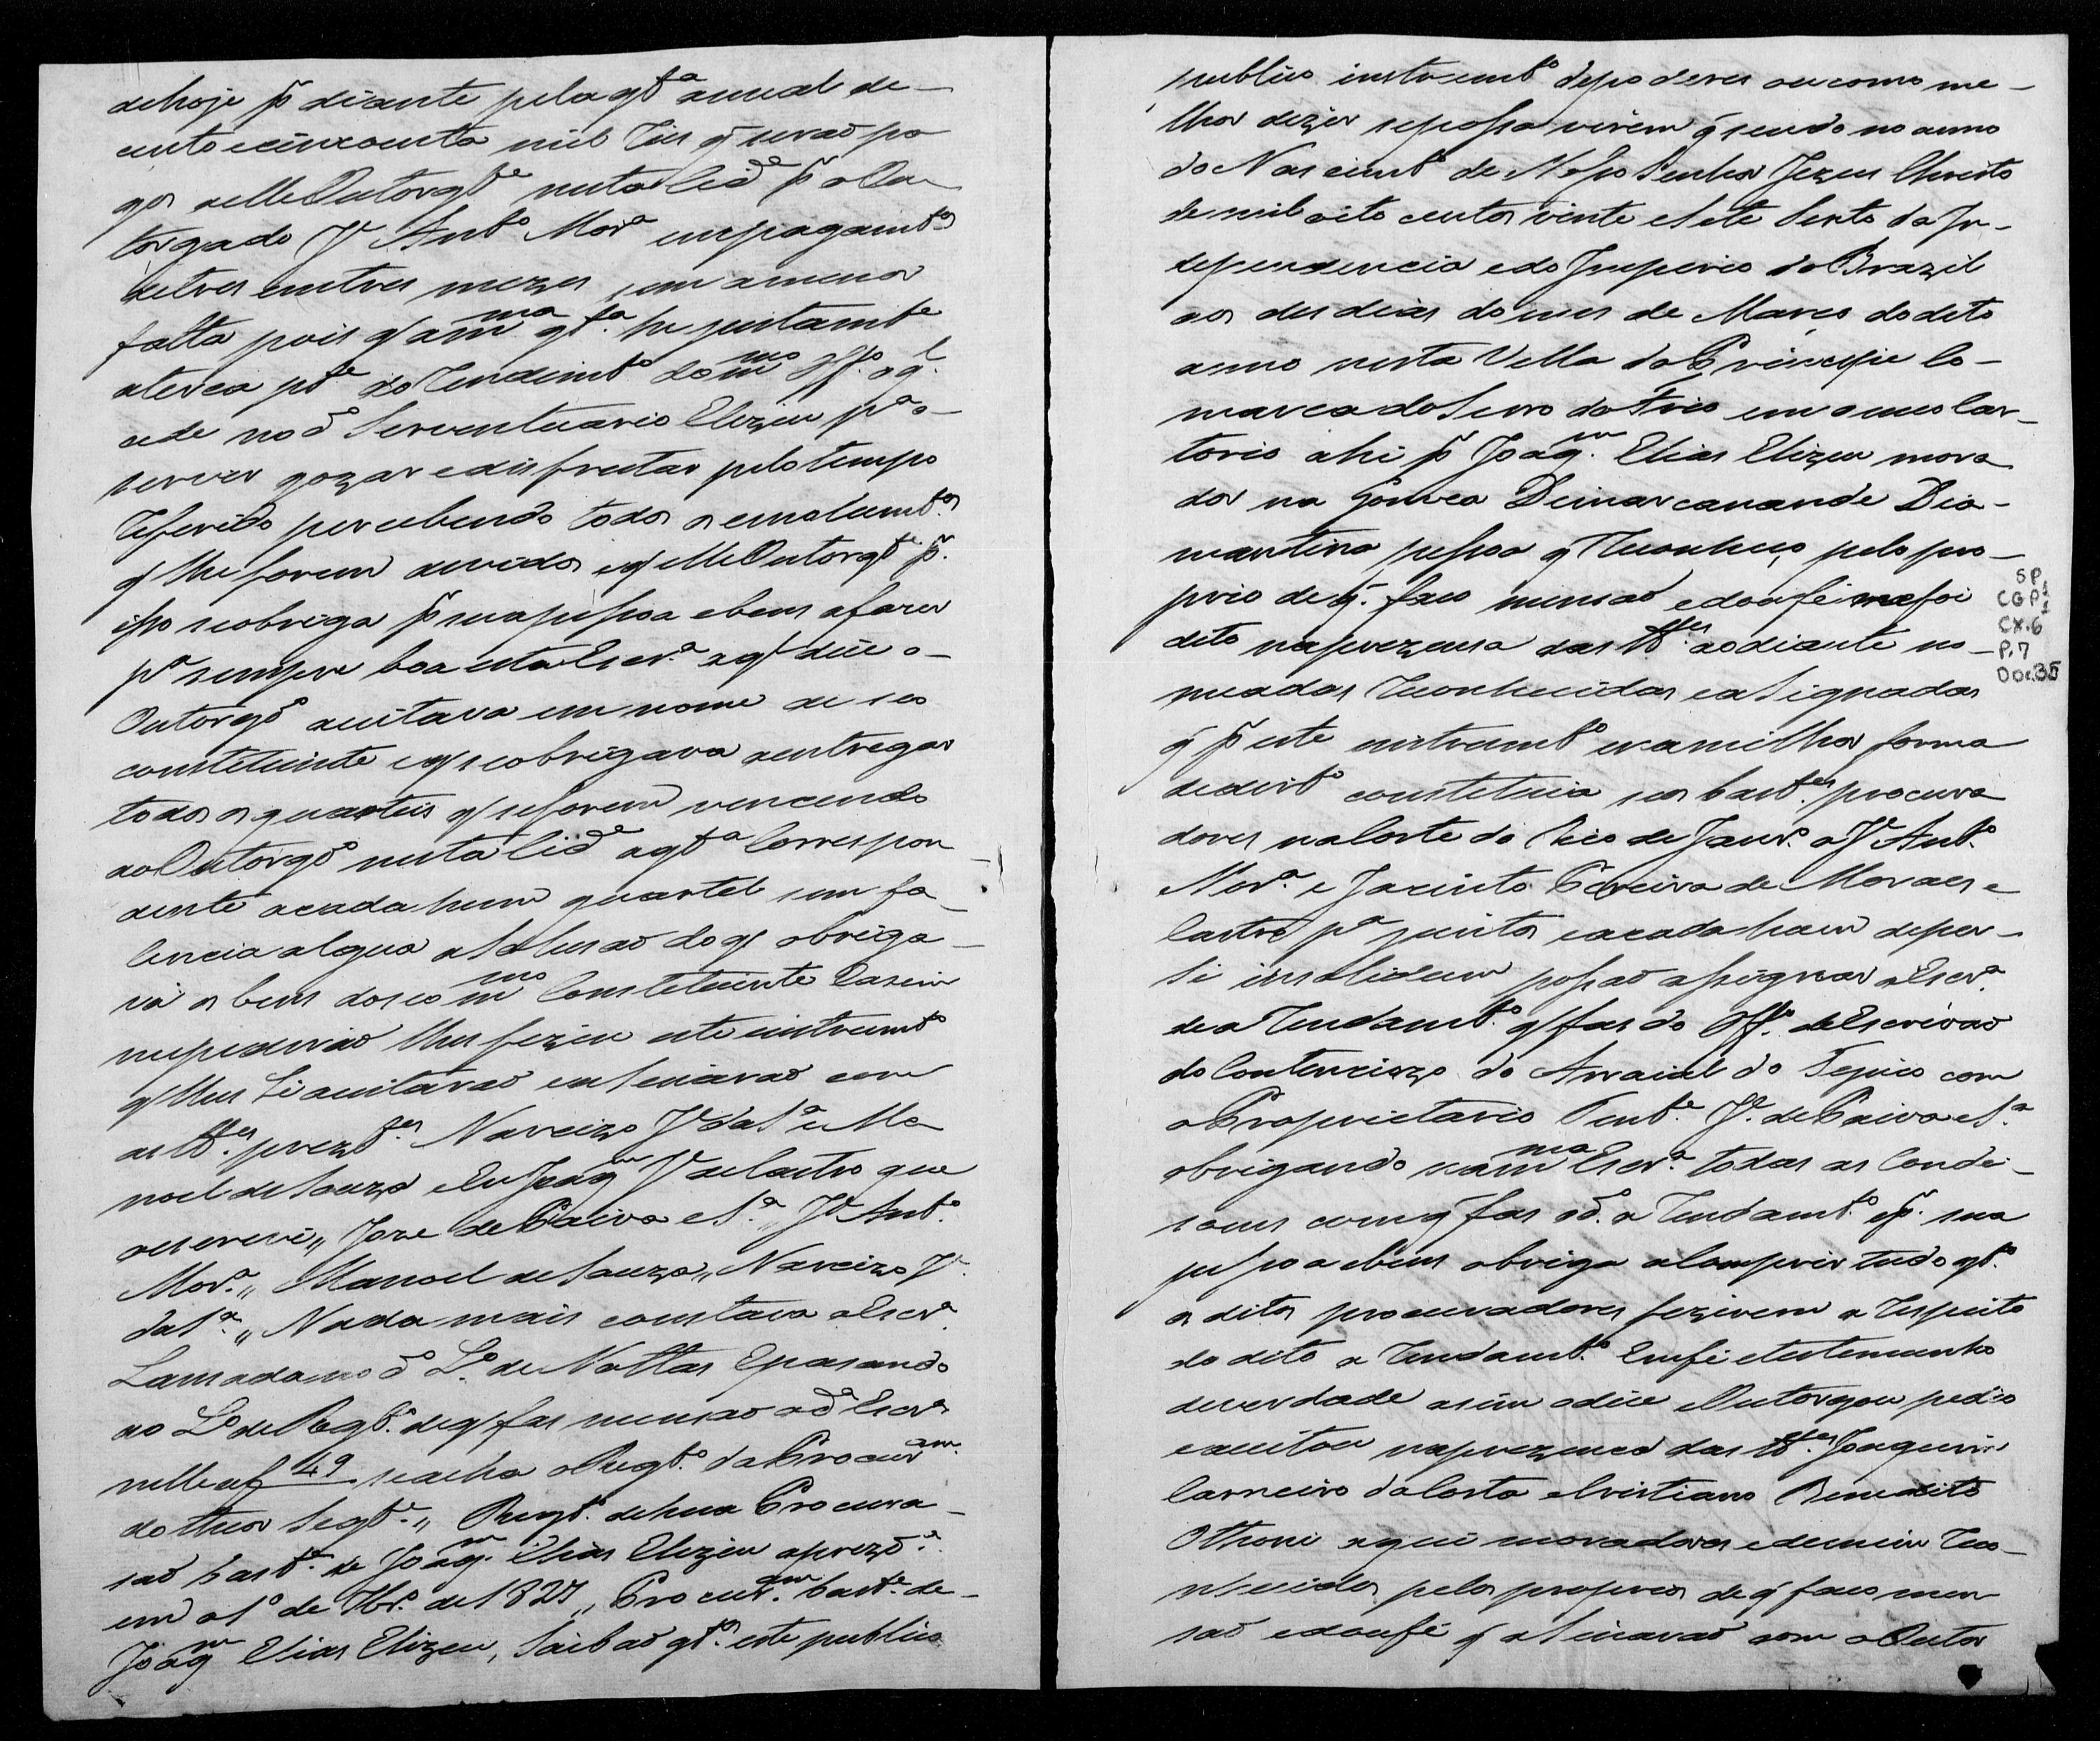 dehoje pr diante pela qta annual de
cento ecincoenta mil reis q serao pa
gos aelle Outorgte nesta Cide pr o Ou
torgado Je Anto Mora em pagamtos
detres em tres mezes sem a menor
falta pois q a mma qta he justamte
aterça pte do rendimto do mmo Offo o ql
cede no do Serventuario Elizeu pa o
server gozar e disfrutar pelo tempo
referido percebendo todos os emolumtos
q lhe forem devidos e q elle Outorgte pr
isso se obriga pr sua pessoa e bens afazer
pa sempre boa esta Escra o q dice o
Outorgdo aceitava em nome de seo
constituinte e q se obrigava aentregar
todos os quarteis q se forem vencendo
ao Outorgo nesta Cide a qta correspon
dente acada hum quartel sem fa
lencia algua a solusao do q obriga
va os bens do seo mmo Constetuinte E asim
me pedirao lhes fizese este instrumto
q lhes Li aceitarao easinarao com
as tts prezes Narcizo Je da Sa e Ma
noel de Souza e Eu Joaqm Je de Castro que
oescrevi,, Joze de Paiva e Sa,, Je Anto
Mora,, Manoel de Souza,, Narcizo Je
da Sa,, Nada mais constava a Escra
Lansada no do Lo de Nottas E pasando
ao Lo de Regto de q fas mensao a da Escra
nelle af 49 se acha o Regto da Procuram
do theor Segte,, Regto de hua Procura
sao baste de Joaqm Elias Elizeu aprezda
em o 1o de 7bro de 1827,, Procuram baste de
Joaqm Elias Elizeu, Saibao qtos este publico
publico instrumto de poderes ou como me
lhor dizer se possa virem q sendo no anno
do Nascimto de Nosso Senhor Jezus Christo
de mil oito centos vinte e Sete Sexto da In
dependencia e do Imperio do Brazil
aos des dias do mes de Março do dito
anno nesta Villa do Principe Co
marca do Serro do Frio em o meo Car
torio ahi pr Joaqm Elias Elizeu mora
dor na Gouvea Demarcasam de Dia
mantina pessoa q reconheço pelo pro
prio de q faco mensao e dou fé me foi
dito na prezensa das tts ao diante no
meadas reconhecidas e asignadas
q pr este instrumto e na milhor forma
de dirto constetuia seos bastes procura
dores na Corte do Rio de Janro a Je Anto
Mora e Jacinto Pereira de Moraes e
Castro pa juntos e acada hum de per
si insolidum possao assignar a Escra
de a rendamto q fas do Offo de Escrivao
do Contencizo do Arraial do Tejuco com
o Proprietario Tente Je de Paiva e Sa
obrigando na mma Escra todas as Conde
soens com q fas o do a rendamto e pr sua
pessoa e bens obriga a Comprir tudo qto
os ditos procuradores fezirem a respeito
do dito a rendamto Em fé e testemunho
de verdade asim o dice e Outorgou pedio
e aceitou na prezenca das tts Joaquim
Carneiro da Costa e Cristiano Benedito
Othoni aqui moradores e de mim reco
nhecidos pelos proprios de q faco men
sao e dou fé q asinarao com o Outor
SP
CGP1
CX.6
P.7
Doc.35